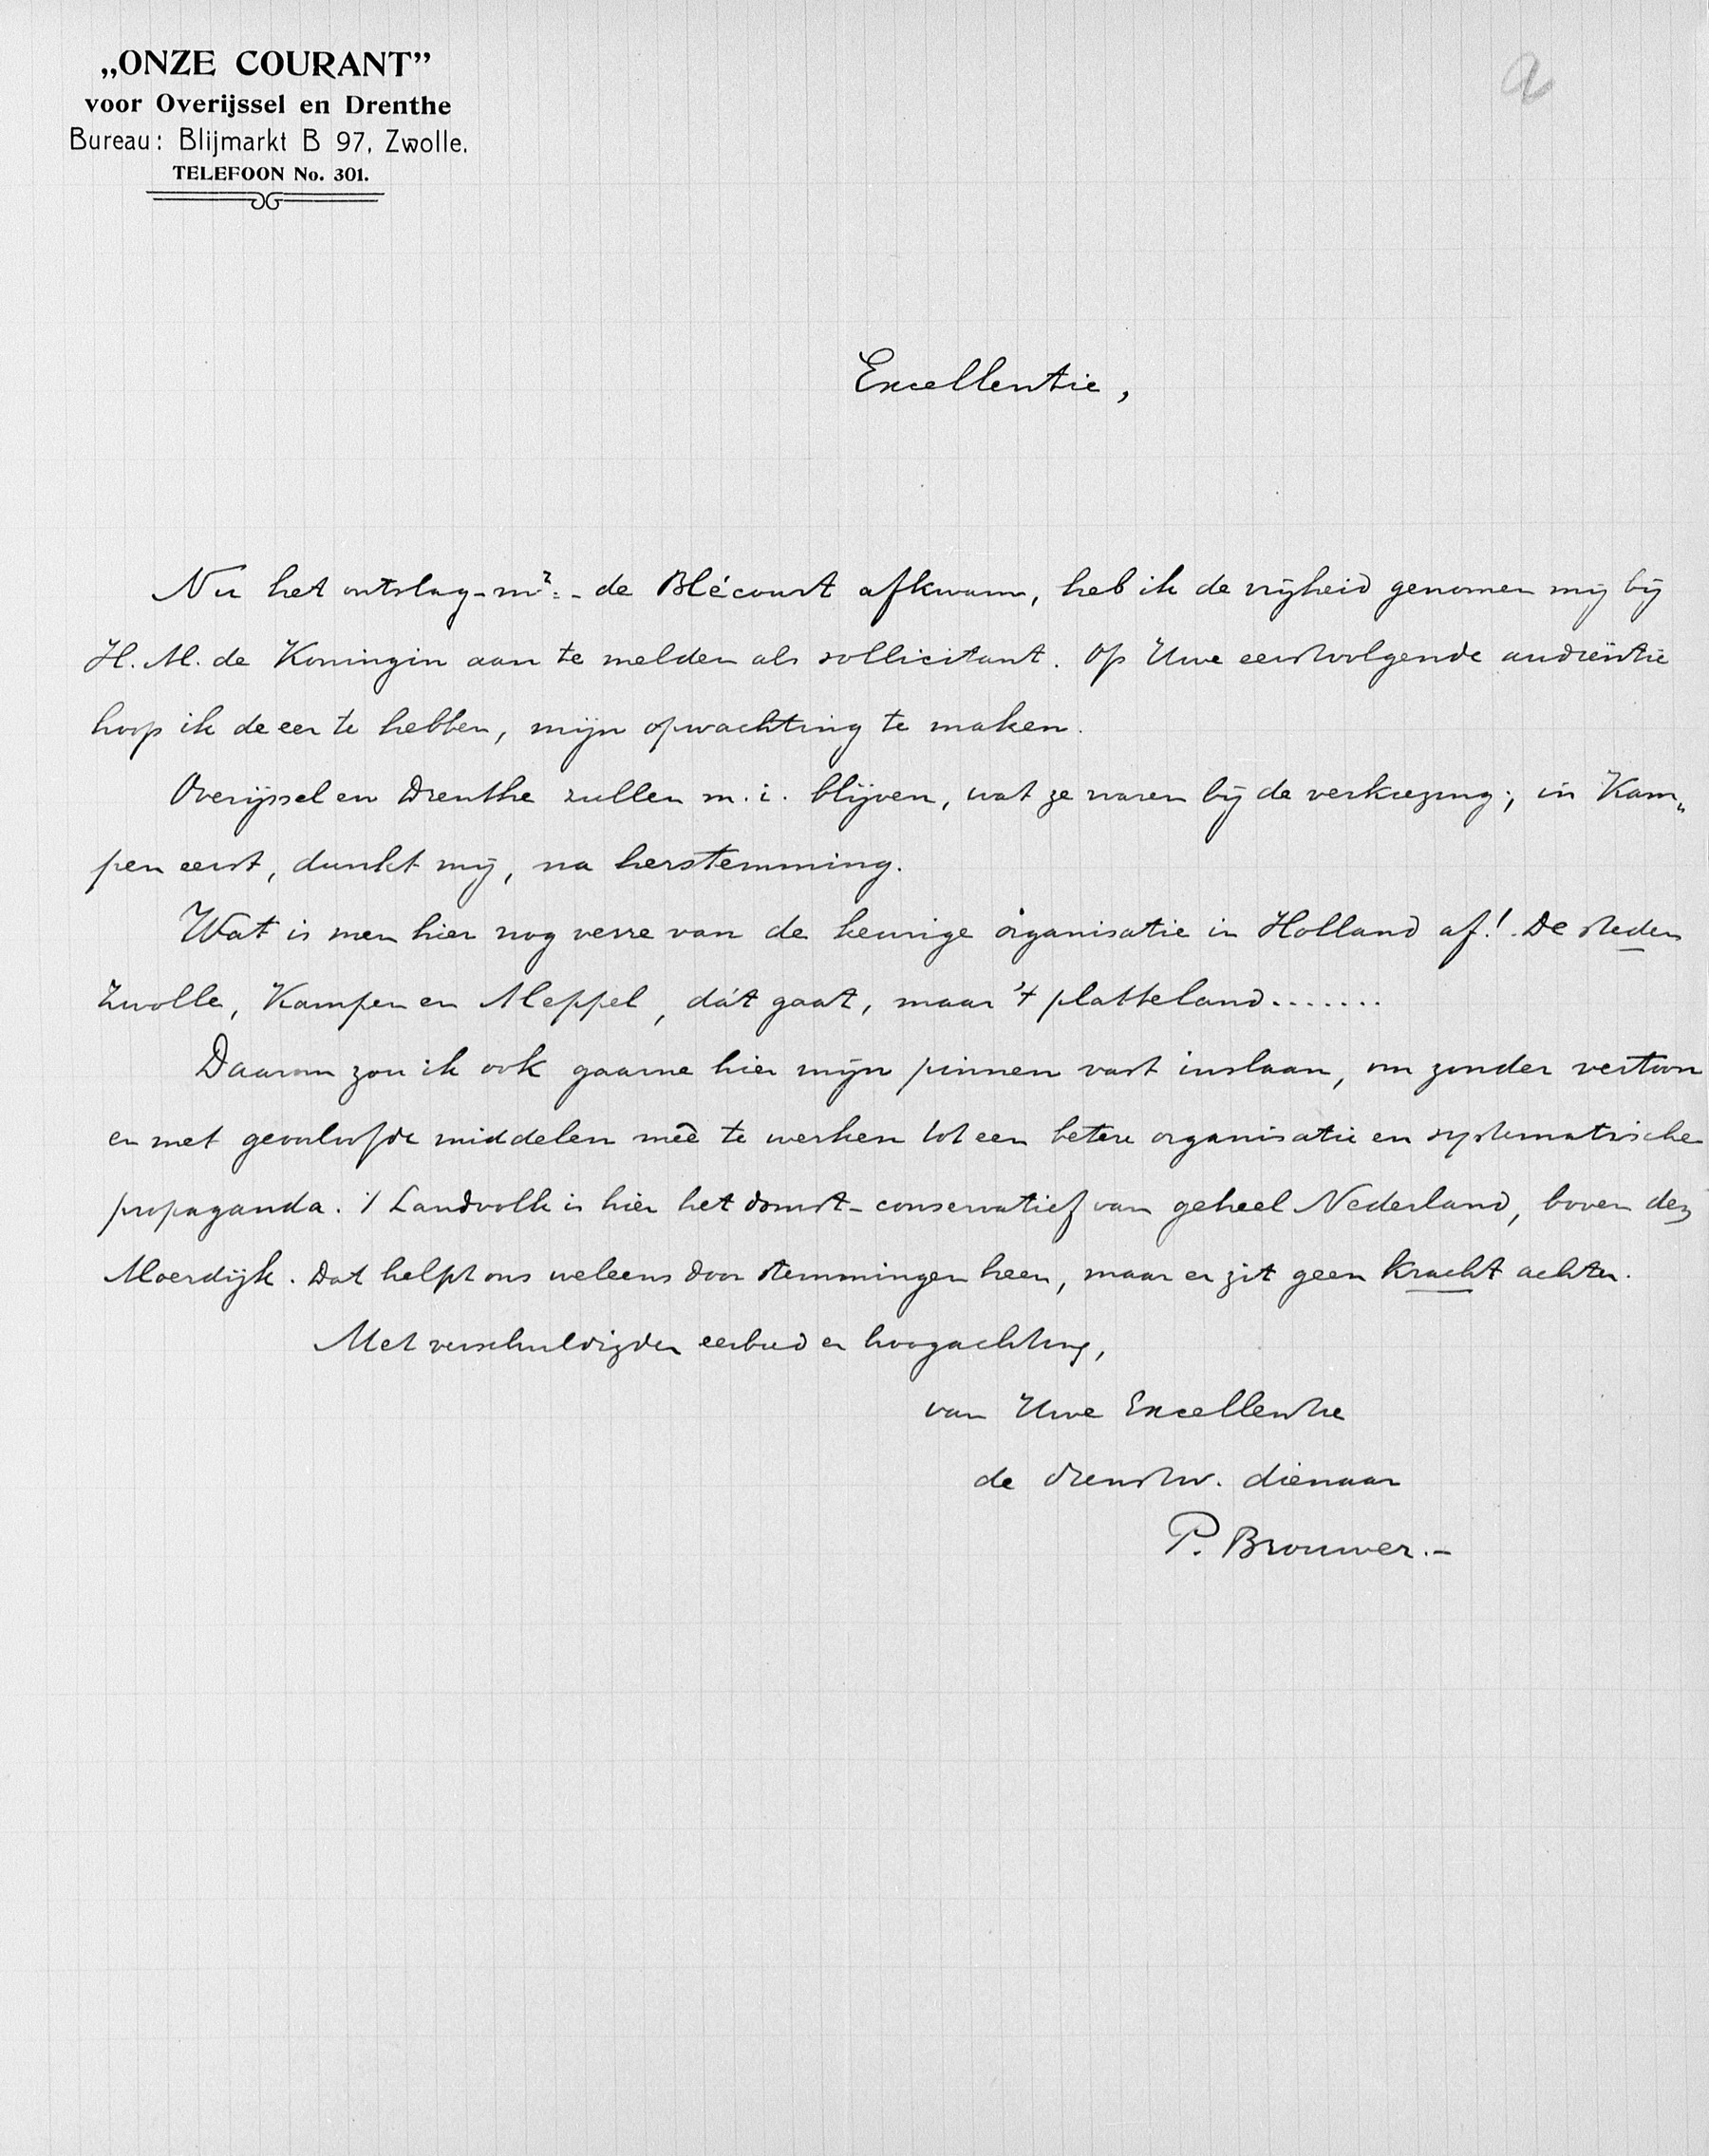 „ONZE COURANT”
voor Overijssel en Drenthe
Bureau: Blijmarkt B 97, Zwolle.
TELEFOON No. 301.
a
Excellentie,
Nu het ontslag-mr.-de Blécourt afkwam, heb ik de vrijheid genomen mij bij
H. M. de Koningin aan te melden als sollicitant. Op Uwe eerstvolgende audiëntie
hoop ik de eer te hebben, mijn opwachting te maken.
Overijssel en Drenthe zullen m. i. blijven, wat ze waren bij de verkiezing; in Kam„
pen eerst, dunkt mij, na herstemming.
Wat is men hier nog verre van de keurige organisatie in Holland af! De steden
Zwolle, Kampen en Meppel, dát gaat, maar 't platteland.......
Daarom zou ik ook gaarne hier mijn pinnen vast inslaan, om zonder vertoon
en met geoorloofde middelen meê te werken tot een betere organisatie en systematische
propaganda. 't Landvolk is hier het domst-conservatief van geheel Nederland, boven den
Moerdijk. Dat helpt ons weleens door stemmingen heen, maar er zit geen kracht achter.
Met verschuldigden eerbied en hoogachting,
van Uwe Excellentie
de dienstw. dienaar
P. Brouwer.-